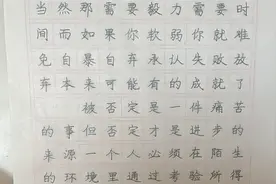 当然那需要毅力需要时
间而如果你软弱你就难
免自暴自弃承认失败放
弃本来可能有的成就了
被否定是一件痛苦
的事但否定才是进步的
来源一个人必须在陌生
的环境里通过考验所得